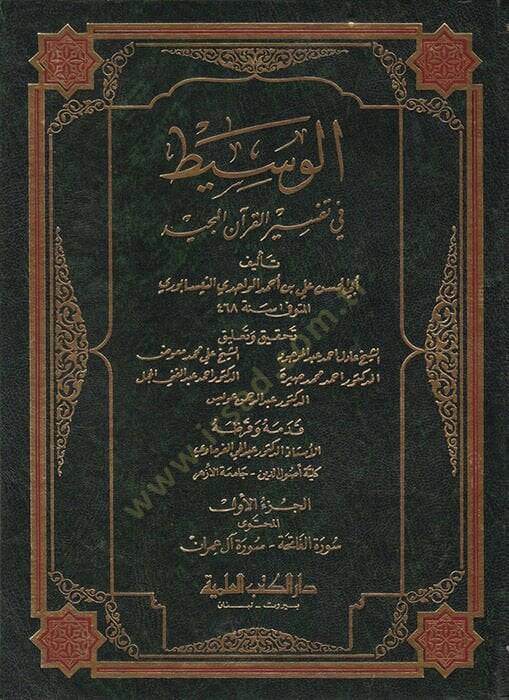 الوسيط
في تفسير القرآن المجيد
تأليف
أبي الحسن علي بن أحمد الواحدي النيسابوري
المتوفى سنة ٤٦٨
تحقيق وتعليق
الشيخ عادل أحمد عبد الموجود الشيخ علي محمد معوض
الدكتور أحمد محمد صيرة الدكتور أحمد عبد الغني الجمل
الدكتور عبد الرحمن عويس
قدمه وقرظه
الأستاذ الدكتور عبد الحي الفرماوي
كلية أصول الدين - جامعة الأزهر
الجزء الأول
المحتوى
سورة الفاتحة - سورة آل عمران
دار الكتب العلمية
بيروت - لبنان
www.irsad.com.tr